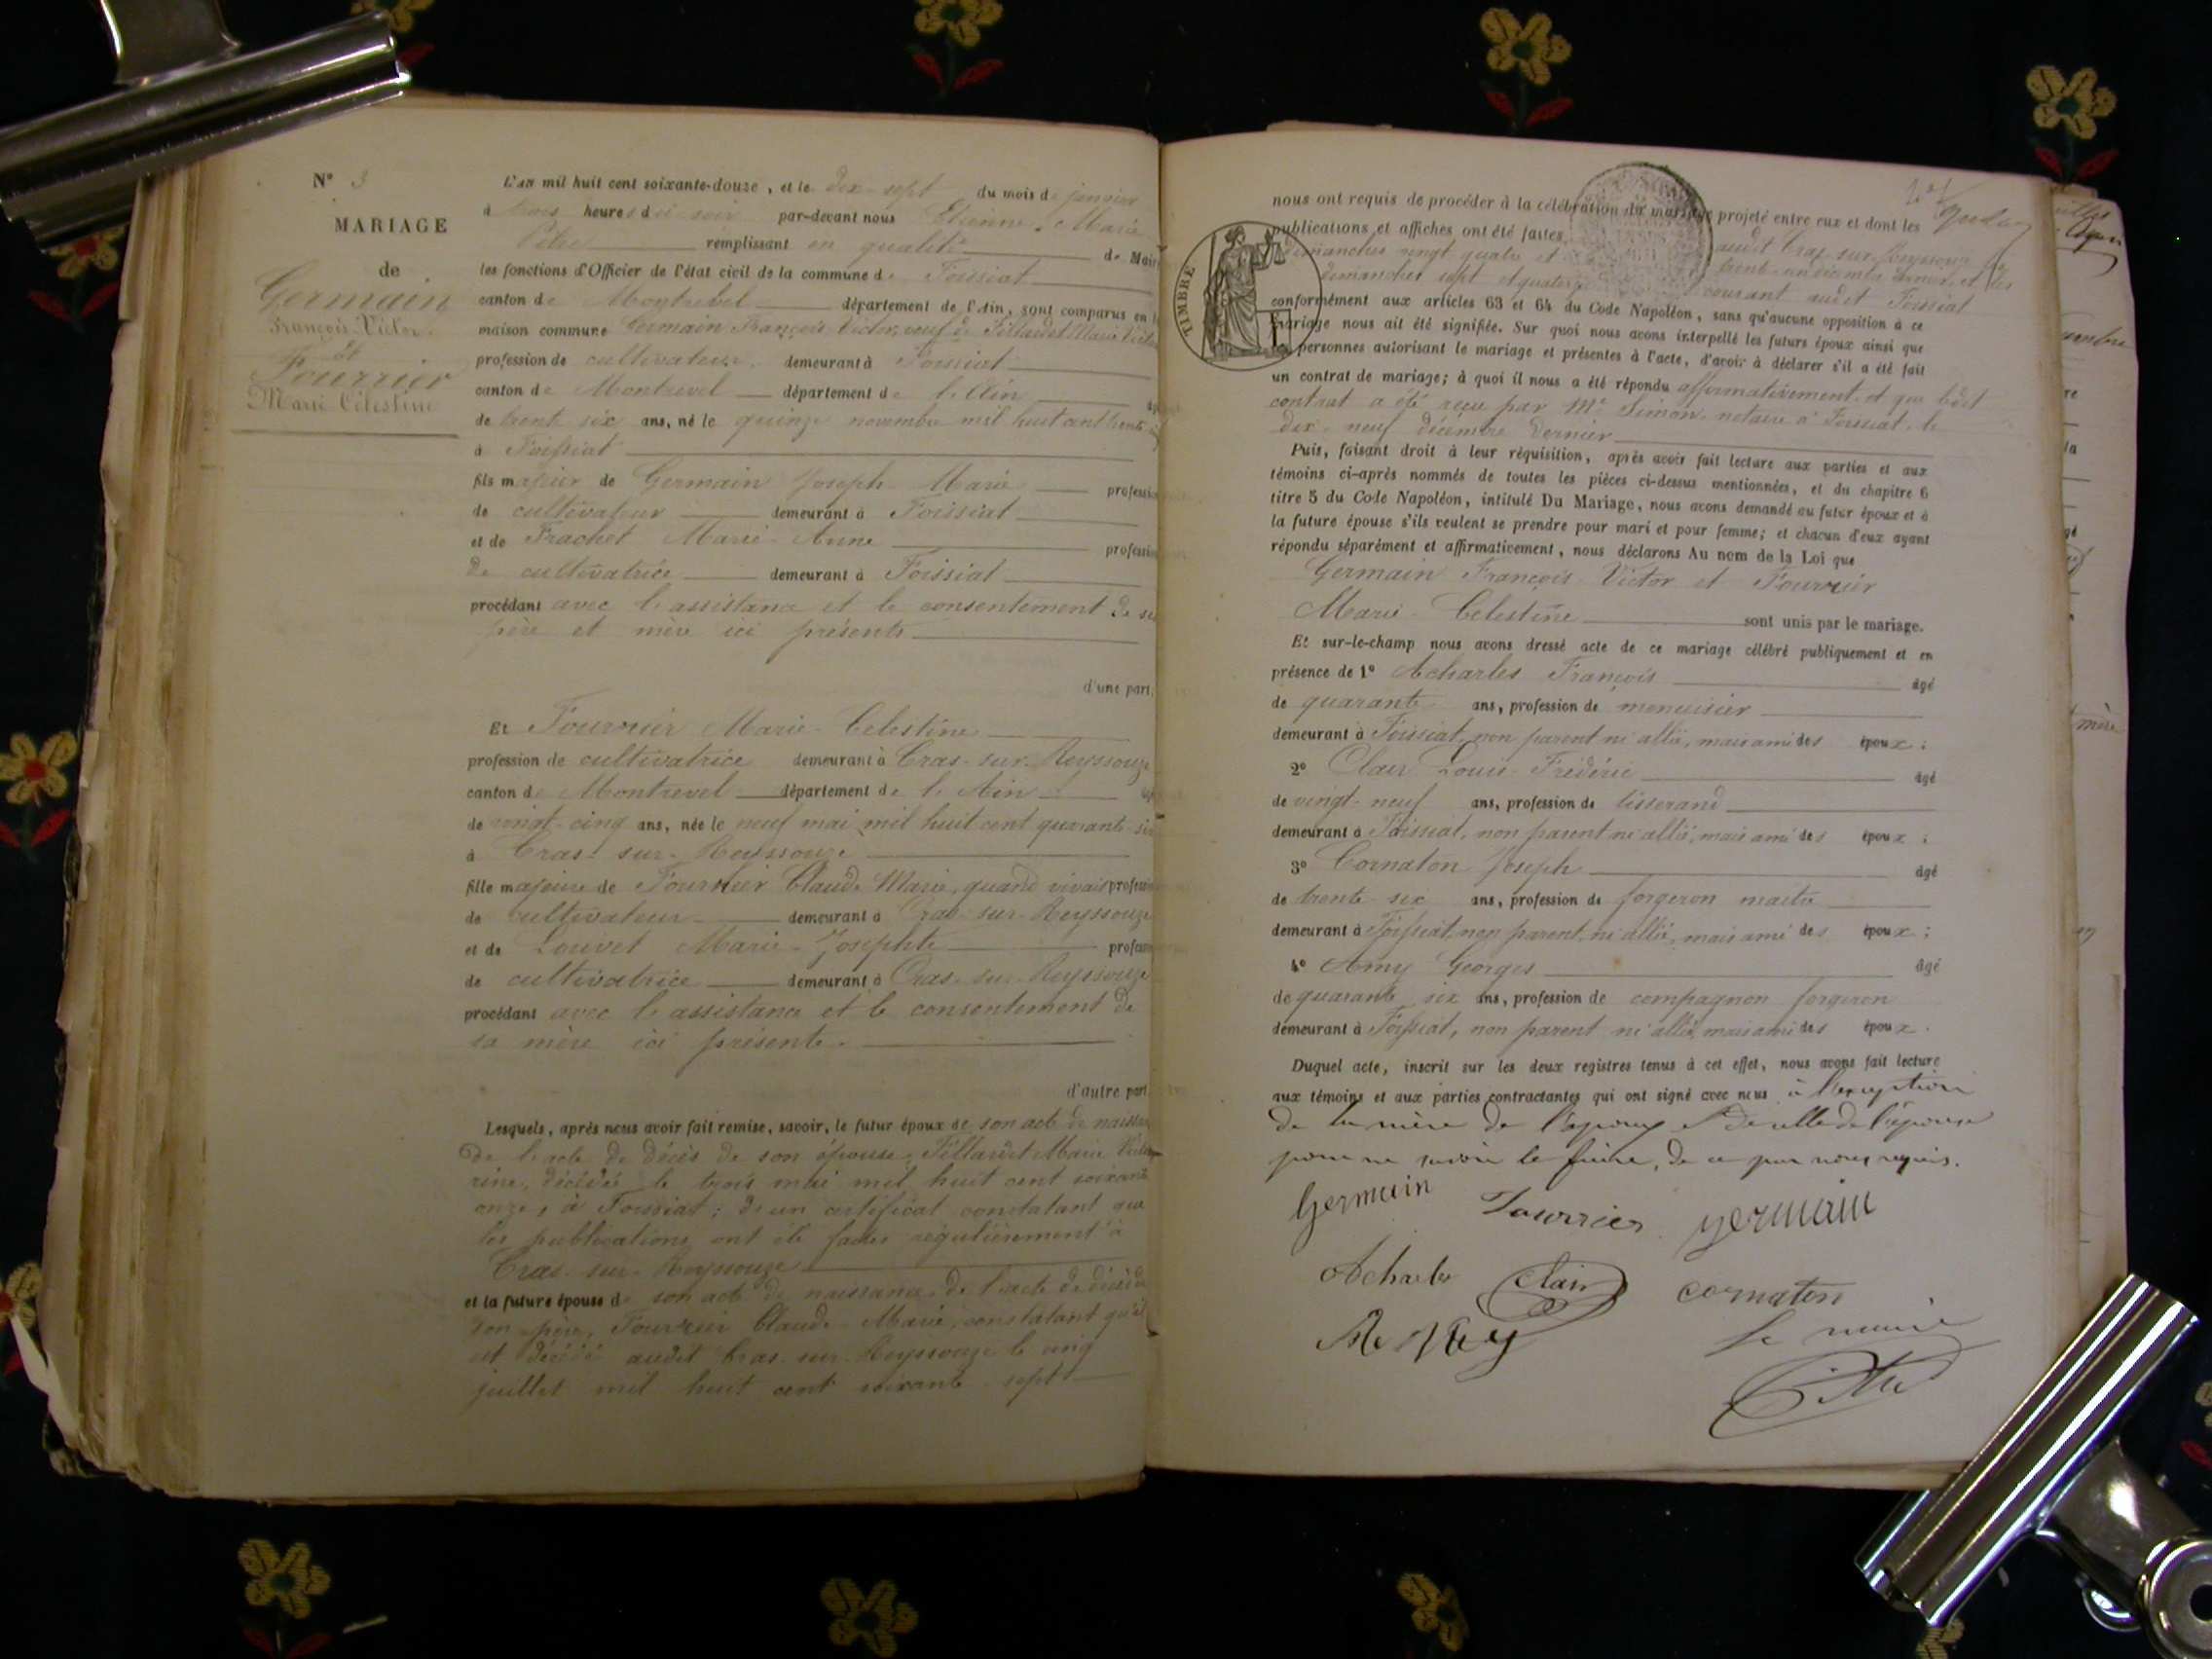 N° 3
MARIAGE
de
Germain
François Victor
et
Fourrier
Marie Célestine
L'an mil huit cent soixante-douze, et le dix-sept du mois de janvier
à trois heures du soir par-devant nous Etienne Marie
remplissant en qualité de Maire
les fonctions d'Officier de l'état civil de la commune de Foissiat
canton de Montrevel département de l'Ain, sont comparus en la
maison commune Germain François Victor, veuf de Fillardet Marie
profession de cultivateur demeurant à Foissiat
canton de Montrevel département de l'Ain
de trente six ans, né le quinze novembre mil huit cent trente
à Foissiat
fils majeur de Germain Joseph Marie profession
de cultivateur demeurant à Foissiat
et de Frachet Marie-Anne profession
de cultivatrice demeurant à Foissiat
procédant avec l'assistance et le consentement de ses
père et mère ici présents
d'une part;
Et Fourrier Marie-Célestine
profession de cultivatrice demeurant à Cras-sur-Reyssouze
canton de Montrevel département de l'Ain
de vingt-cinq ans, née le neuf mai mil huit cent quarante-six
à Cras-sur-Reyssouze
fille majeure de Fourrier Claude Marie, quand vivait profession
de cultivateur demeurant à Cras-sur-Reyssouze
et de Louvet Marie-Josephte profession
de cultivatrice demeurant à Cras-sur-Reyssouze
procédant avec l'assistance et le consentement de
sa mère ici présente.
d'autre part.
Lesquels, après nous avoir fait remise, savoir, le futur époux de son acte de naissance
de l'acte de décès de son épouse, Fillardet Marie
décédée le trois mai mil huit cent soixante
onze, à Foissiat; d'un certificat constatant que
les publications ont été faites régulièrement à
Cras-sur-Reyssouze
et la future épouse de son acte de naissance de l'acte de décès de
son père, Fourrier Claude-Marie, constatant qu'il
est décédé audit Cras-sur-Reyssouze le cinq
juillet mil huit cent soixante-sept
nous ont requis de procéder à la célébration du mariage projeté entre eux et dont les
publications et affiches ont été faites
dimanches vingt quatre et audit Cras-sur-Reyssouze
trente-un décembre dernier, et les
dimanches sept et quatorze courant audit Foissiat
TIMBRE
conformément aux articles 63 et 64 du Code Napoléon, sans qu'aucune opposition à ce
mariage nous ait été signifiée. Sur quoi nous avons interpellé les futurs époux ainsi que
personnes autorisant le mariage et présentes à l'acte, d'avoir à déclarer s'il a été fait
un contrat de mariage; à quoi il nous a été répondu affirmativement et que ledit
contrat a été reçu par Me Simon notaire à Foissiat le
dix-neuf décembre dernier
Puis, faisant droit à leur réquisition, après avoir fait lecture aux parties et aux
témoins ci-après nommés de toutes les pièces ci-dessus mentionnées, et du chapitre 6
titre 5 du Code Napoléon, intitulé Du Mariage, nous avons demandé au futur époux et à
la future épouse s'ils veulent se prendre pour mari et pour femme; et chacun d'eux ayant
répondu séparément et affirmativement, nous déclarons Au nom de la Loi que
Germain François Victor et Fourrier
Marie-Celestine sont unis par le mariage.
Et sur-le-champ nous avons dressé acte de ce mariage célébré publiquement et en
présence de 1° Acharles François âgé
de quarante ans, profession de menuisier
demeurant à Foissiat, non parent ni allié, mais ami des époux;
2° Clair Louis Frédéric âgé
de vingt-neuf ans, profession de tisserand
demeurant à Foissiat, non parent ni allié, mais ami des époux;
3° Cornaton Joseph âgé
de trente-six ans, profession de forgeron maître
demeurant à Foissiat, non parent, ni allié, mais ami des époux;
4° Amy Georges âgé
de quarante six ans, profession de compagnon forgeron
demeurant à Foissiat, non parent ni allié, mais ami des époux.
Duquel acte, inscrit sur les deux registres tenus à cet effet, nous avons fait lecture
aux témoins et aux parties contractantes qui ont signé avec nous à l'exception
de la mère de l'époux et de celle de l'épouse
pour ne savoir le faire, de ce par nous requis.
Germain Fourrier germain
Acharles Clair cornaton
le maire